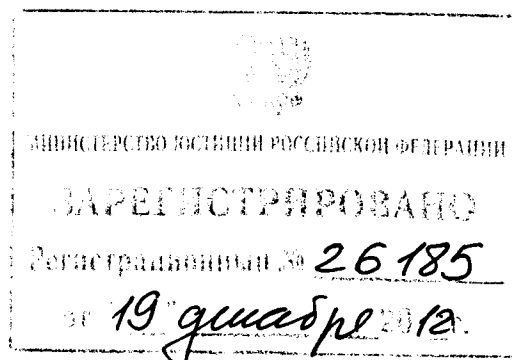 МИНИСТЕРСТВО ЮСТИЦИИ РОССИЙСКОЙ ФЕДЕРАЦИИ
ЗАРЕГИСТРИРОВАНО
Регистрационный № 26185
от "19" декабря 2012г.